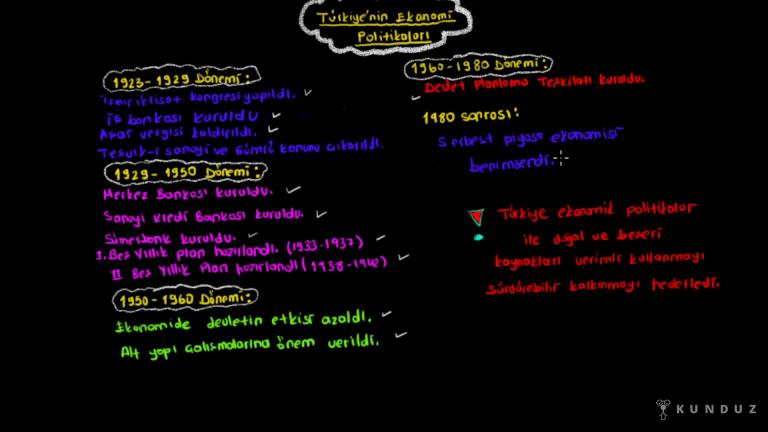 Türkiye'nin Ekonomi
Politikaları
1923-1929 Dönemi:
İzmir iktisat kongresi yapıldı.
İş bankası kuruldu
Aşar vergisi kaldırıldı.
Teşvik-i sanayi ve Gümrü kanunu çıkarıldı.
1929-1950 Dönemi:
Merkez Bankası kuruldu.
Sanayi kredi Bankası kuruldu.
Sümerbank kuruldu.
I. Beş Yıllık plan hazırlandı. (1933-1937)
II Beş Yıllık Plan hazırlandı (1938-1942)
1950-1960 Dönemi:
Ekonomide devletin etkisi azaldı.
Alt yapı çalışmalarına önem verildi.
1960-1980 Dönemi:
Devlet Planlama Teşkilatı kuruldu.
1980 sonrası:
Serbest piyasa ekonomisi
benimsendi.
Türkiye ekonomik politikalar
ile doğal ve beşeri
kaynakları verimli kullanmayı
sürdürebilir kalkınmayı hedefledi.
KUNDUZ